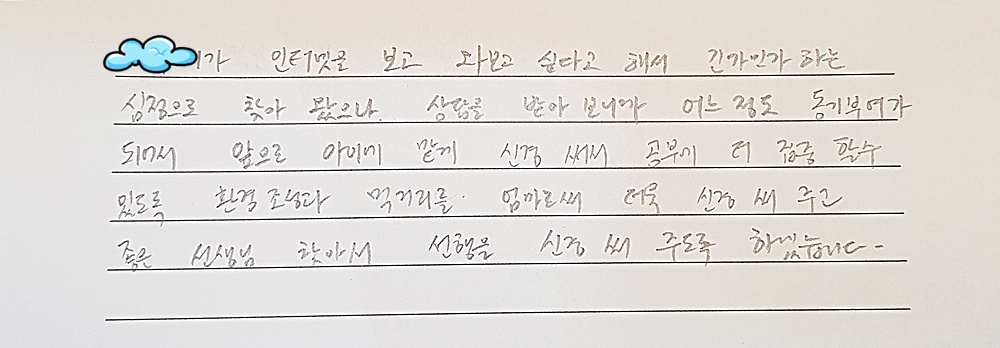 가 인터넷을 보고 와보고 싶다고 해서 긴가민가 하는
심정으로 찾아 왔으나. 상담을 받아 보니까 어느 정도 동기부여가
되어서 앞으로 아이에 맞게 신경 써서 공부에 더 집중 할수
있도록 환경 조성과 먹거리를. 엄마로써 더욱 신경 써 주고
좋은 선생님 찾아서 선행을 신경 써 주도록 하겠습니다-